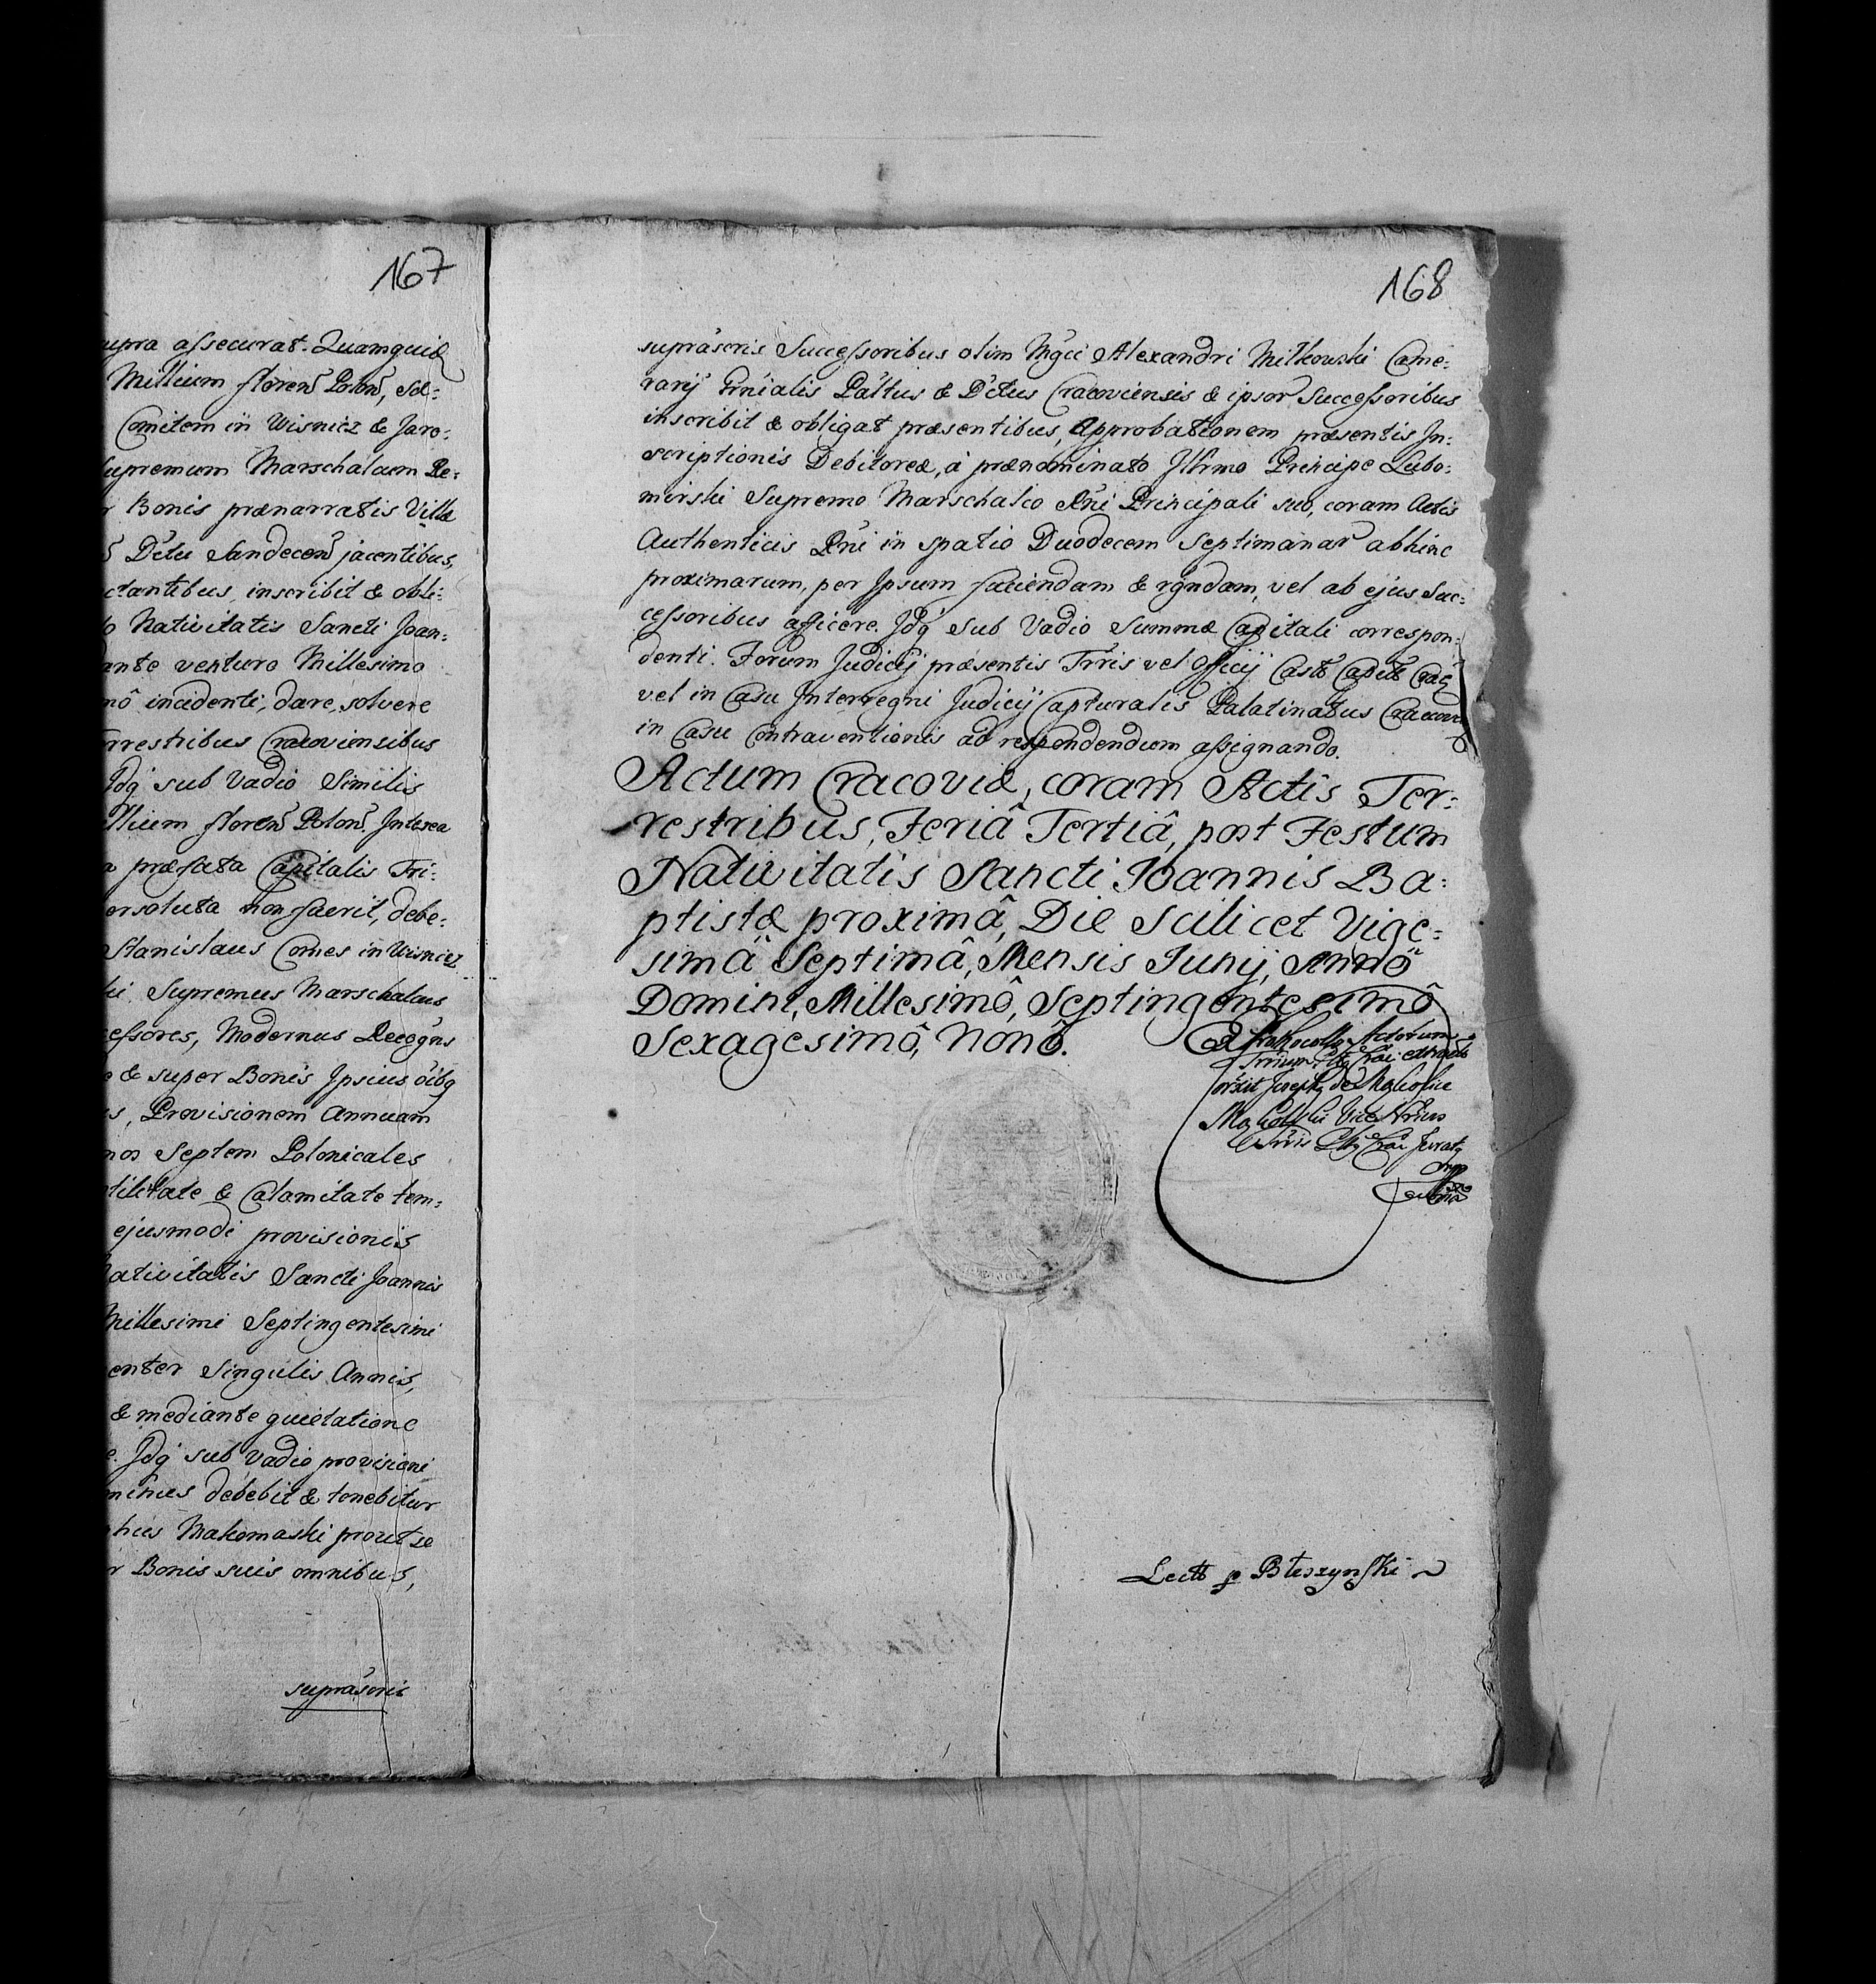 167
supra assecurat. Quamquid
Millium floren̄ Polon̄, Sol=
Comitem in Wisnicz & Jaro=
Supremum Marschalcum Re=
Bonis prænarratis Villæ
D̄ctu Sandecen̄ jacentibus,
inscribit & obli=
Nativitatis Sancti Joan=
venturo Millesimo
incidenti, dare, solvere
Cracoviensibus
Jdq̄ sub Vadio Similis
floren̄ Polon̄. Interea
præfata Capitalis Tri=
non fuerit, debe=
Stanislaus Comes in Wisnicz
Supremus Marschalcus
Modernus Recogn̄s
& super Bonis Ipsius oībq
Provisionem Annuam
Septem Polonicales
& Calamitate tem=
ejusmodi provisionis
Nativitatis Sancti Joannis
Millesimi Septingentesimi
Singulis Annis,
& mediante quietatione
Jdq̄ sub Vadio provisioni
debebit & tenebitur
Makomaski prout se
Bonis suis omnibus,
suprascris
168
suprascris Successoribus olim Mgci Alexandri Milkowski Came=
rarij Grnialis Paltus & D̄ctus Cracoviensis & ipsor̄ Successoribus
inscribit & obligat præsentibus, Approbationem præsentis In=
scriptionis Debitoreæ, à prænominato Jllrmo Principe Lubo=
mirski Supremo Marschalco R̄ni Principali suo, coram Actis
Authenticis R̄ni in spatio Duodecem Septimanar̄ abhinc
proximarum, per Ipsum faciendam & rgndam, vel ab ejus Suc=
cessoribus afficere. Jdq̄ sub Vadio Summæ Capitali correspon=
denti. Forum Judicij præsentis Trris vel Officij Cast̄ Capit̄ Crac̄
vel in Casu Interregni Judicij Capturalis Palatinatus Cracovi
in Casu Contraventionis ad respondendum assignando.
Actum Cracoviæ, coram Actis Ter=
restribus, Feriâ Tertiâ, post Festum
Nativitatis Sancti Joannis Ba=
ptistæ proximâ, Die Scilicet Vige=
simâ Septimâ, Mensis Junij, Annô
Domini, Millesimô, Septingentesimô
Sexagesimô, Nonô.
Ex Prothocollo Actorum
Jurat̄
Lectt p Błeszynski